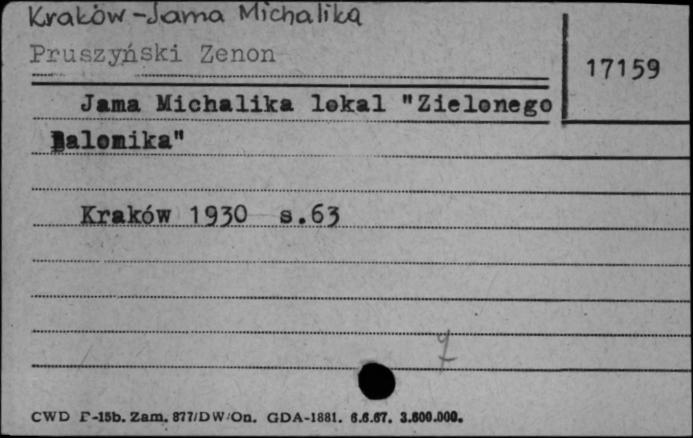 Kraków-Jama Michalika
Pruszyński Zenon
17159
Jama Michalika lokal "Zielonego
Balonika"
Kraków 1930 s.63
7
CWD F-15b. Zam. 877/DW/On. GDA-1881. 6.6.67. 3.600.000.